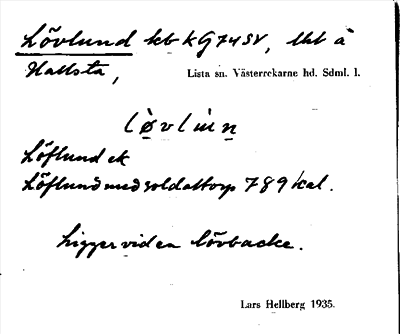 Lövlund kb kG74SV, tht å
Hallsta,
Lista sn. Västerrekarne hd. Sdml. l.
lø̀vlun̥
Löflund ek
Löflund med soldattorp 789 kal.
ligger vid en lövbacke.
Lars Hellberg 1935.